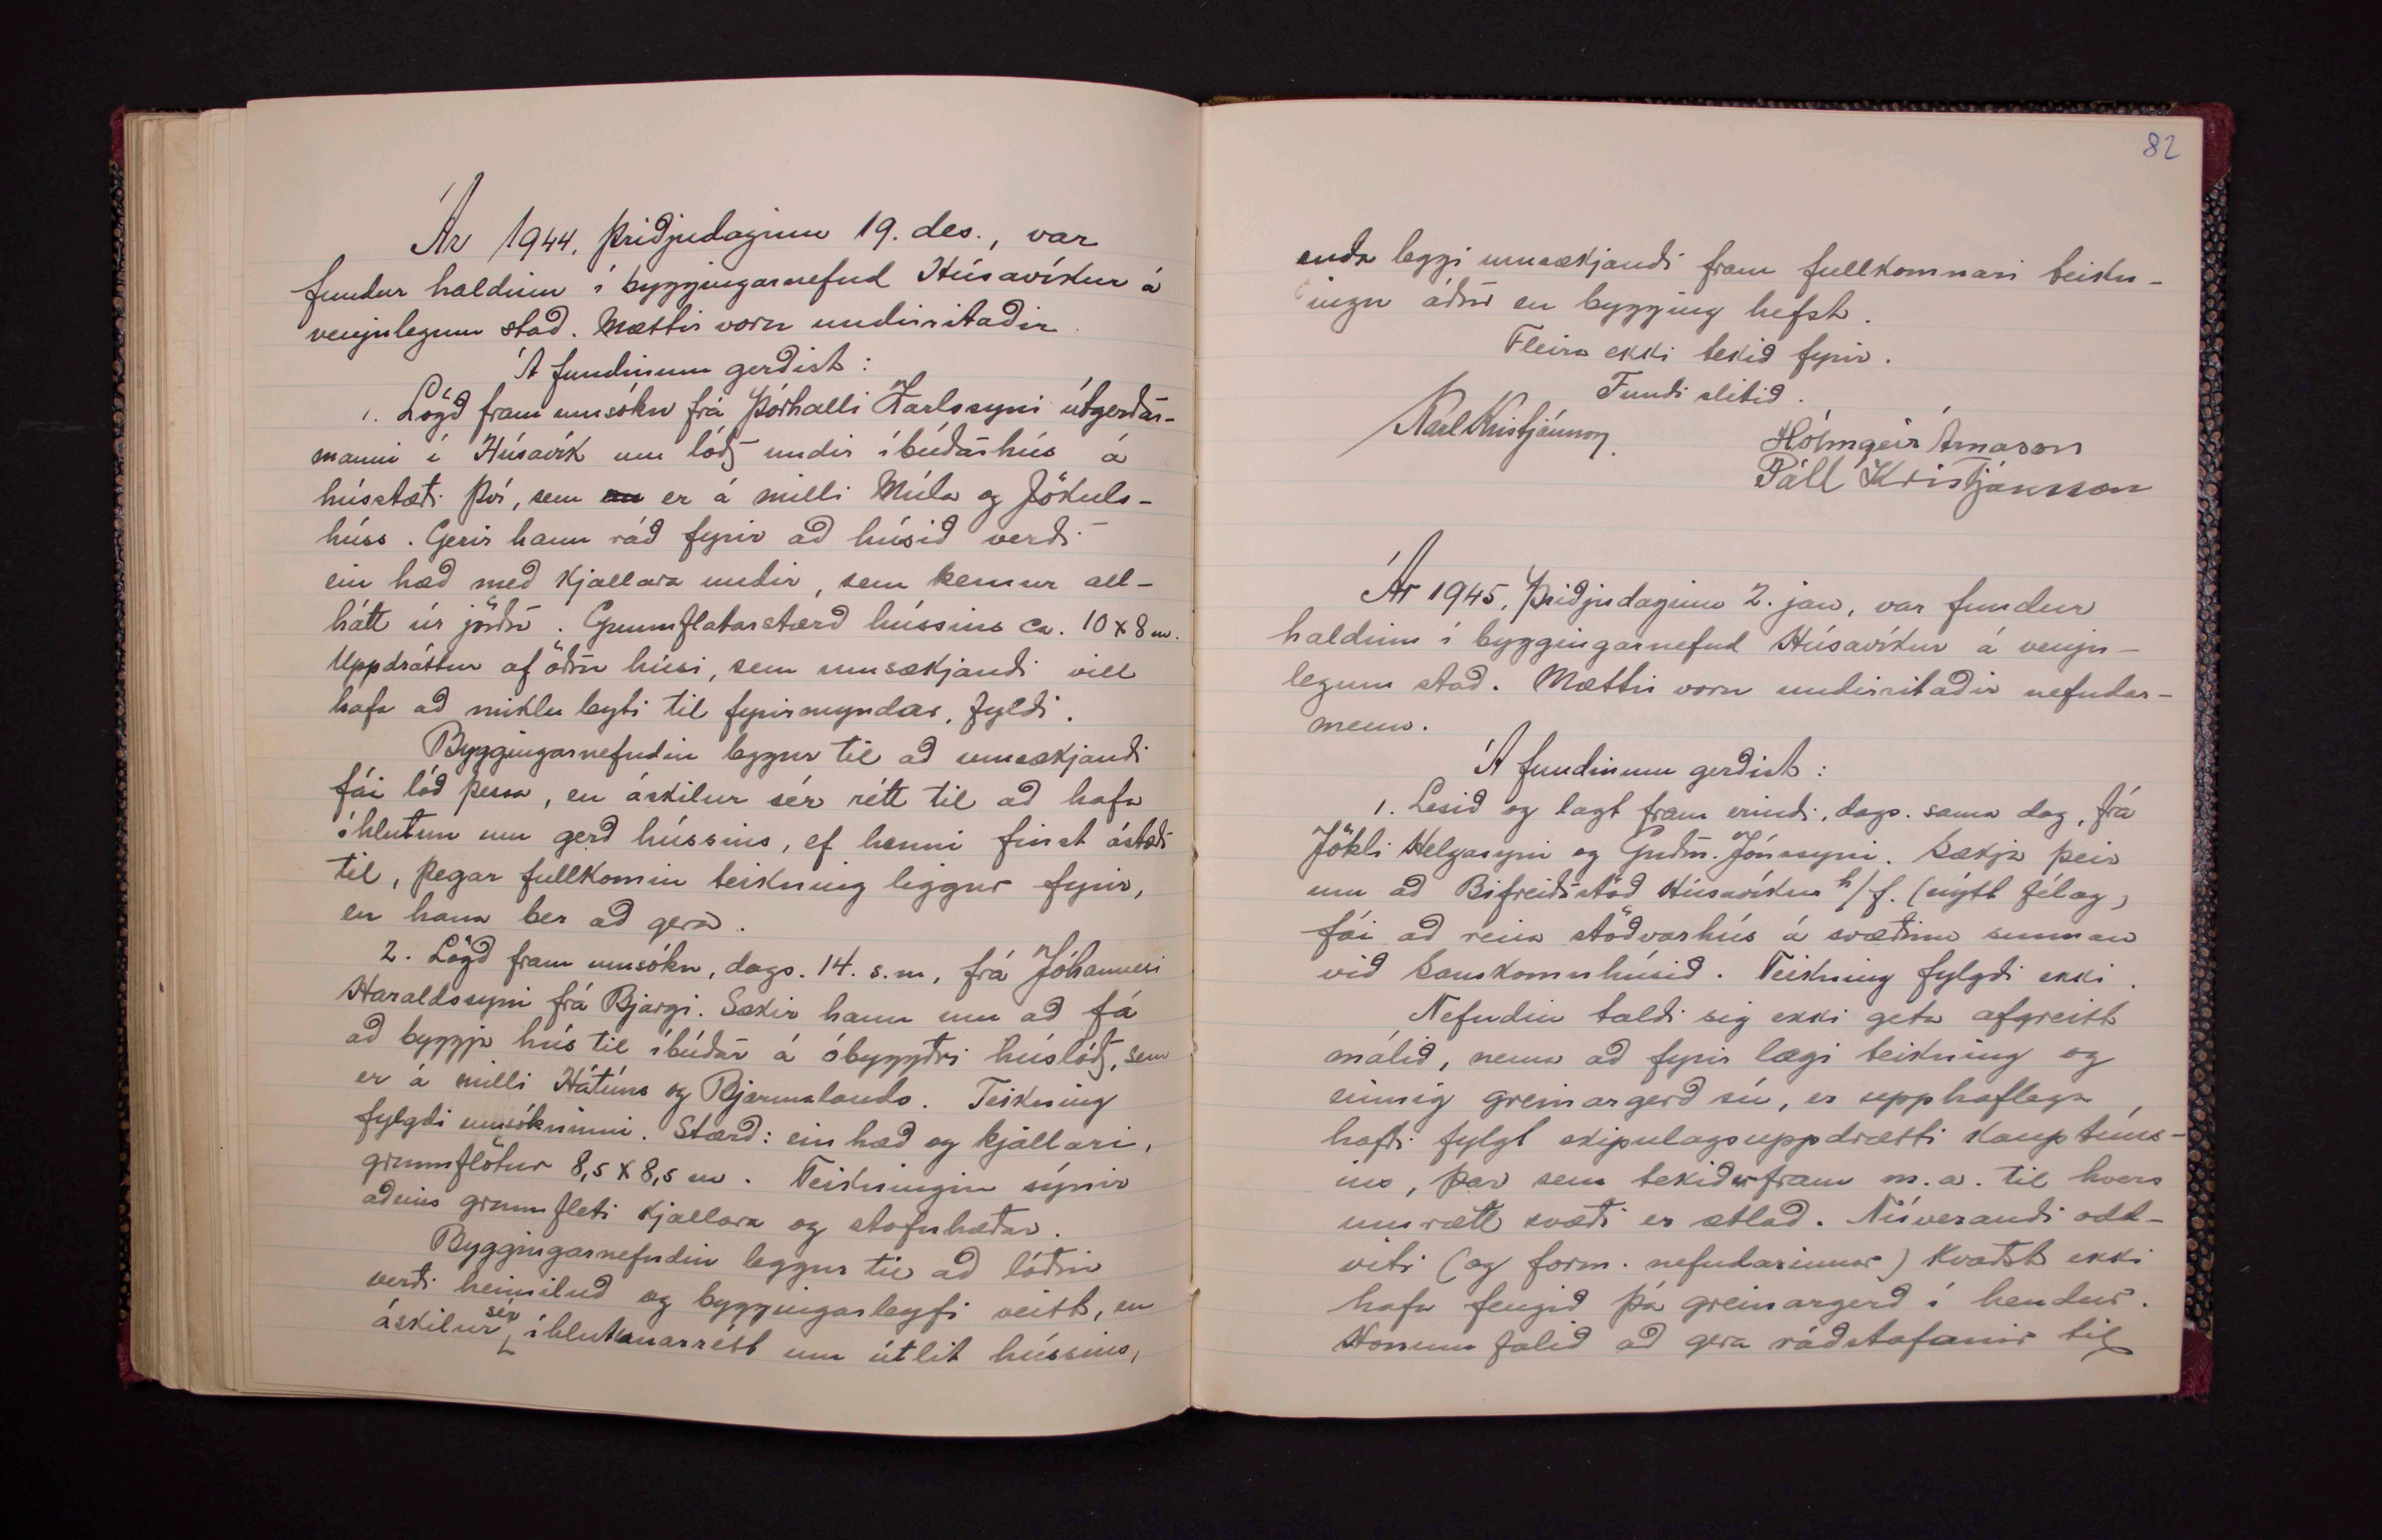 Ár 1944, þriðjudaginn 19. des., var
fundur haldinn í byggingarnefnd Húsavíkur á
venjulegum stað. Mættir voru undirritaðir.
Á fundinum gerðist:
1. Lögð fram umsókn frá Þórhalli Karlssyni útgerðar-
manni í Húsavík um lóð undir íbúðarhús á
hússtæði því, sem er á milli Múla og Jökuls-
húss. Gerir hann ráð fyrir að húsið verði
ein hæð með kjallara undir, sem kemur all-
hátt úr jörðu. Grunnflatarstærð hússins ca. 10 x 8 m.
Uppdráttur af öðru húsi, sem umsækjandi vill
hafa að miklu leyti til fyrirmyndar, fylgdi.
Byggingarnefndin leggur til að umsækjandi
fái lóð þessa, en áskilur sér rétt til að hafa
íhlutun um gerð hússins, ef henni finst ástæða
til, þegar fullkomin teikning liggur fyrir,
en hana ber að gera.
2. Lögð fram umsókn, dags. 14. s.m., frá Jóhannesi
Haraldssyni frá Bjargi. Sækir hann um að fá
að byggja hús til íbúðar á óbyggðri húslóð, sem
er á milli Hátúns og Bjarmalands. Teikning
fylgdi umsókninni. Stærð: ein hæð og kjallari,
grunnflötur 8,5 x 8,5 m. Teikningin sýnir
aðeins grunnfleti kjallara og stofuhæðar.
Byggingarnefndin leggur til að lóðin
verði heimiluð og byggingarleyfi veitt, en
áskilur sér íhlutunarrétt um útlit hússins,
82
enda leggi umsækjandi fram fullkomnari teikn-
ingu áður en bygging hefst.
Fleira ekki tekið fyrir.
Fundi slitið.
Karl Kristjánsson
Hólmgeir Árnason
Páll Kristjánsson
Ár 1945, þriðjudaginn 2. jan, var fundur
haldinn í byggingarnefnd Húsavíkur á venju-
legum stað. Mættir voru undirritaðir nefndar-
menn.
Á fundinum gerðist:
1. Lesið og lagt fram erindi, dags. sama dag, frá
Jökli Helgasyni og Guðm. Jónssyni. Sækja þeir
um að Bifreiðastöð Húsavíkur h/f. (nýtt félag)
fái að reisa stöðvarhús á svæðinu sunnan
við Samkomuhúsið. Teikning fylgdi ekki.
Nefndin taldi sig ekki geta afgreitt
málið, nema að fyrir lægi teikning og
einnig greinargerð sú, er upphaflega
hafði fylgt skipulagsuppdrætti kauptúns-
ins, þar sem tekið er fram m.a. til hvers
umrætt svæði er ætlað. Núverandi odd-
viti (og form. nefndarinnar) kvaðst ekki
hafa fengið þá greinargerð í hendur.
Honum falið að gera ráðstafanir til